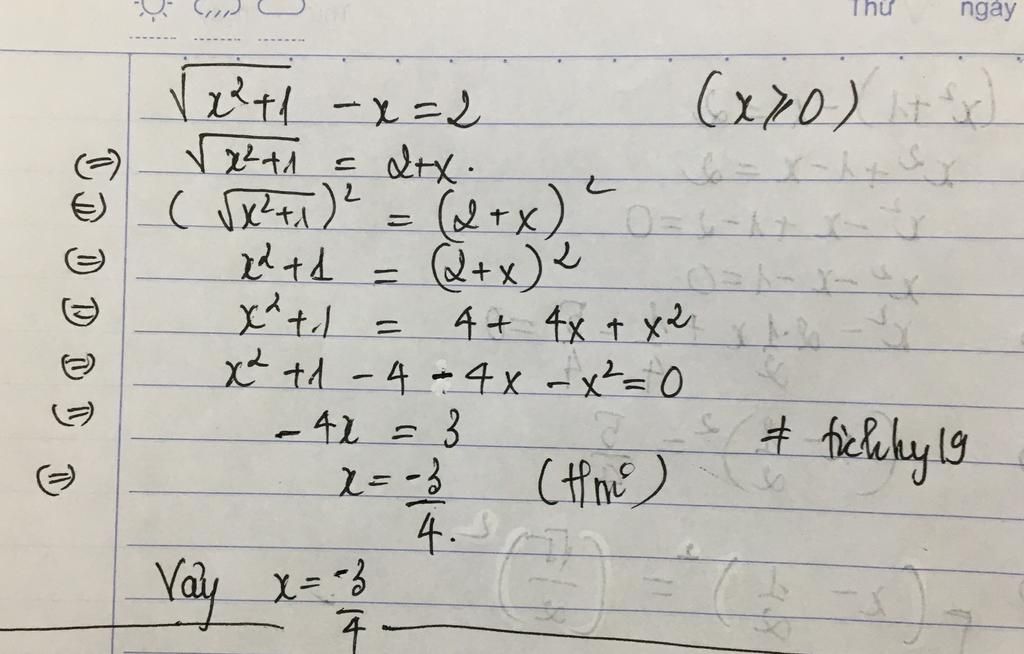 Thứ ngày
√(x²+1) - x = 2 (x ⩾ 0)
(=) √(x²+1) = 2+x.
(=) (√(x²+1))² = (2+x)²
(=) x²+1 = (2+x)²
(=) x²+1 = 4 + 4x + x²
(=) x²+1 - 4 - 4x - x² = 0
(=) - 4x = 3 # tichhy19
(=) x = -3/4. (tmđ)
Vậy x = -3/4